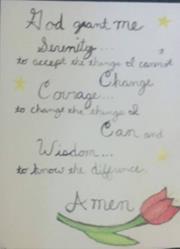 God grant me
Serenity...
to accept the things I cannot
Change
Courage...
to change the things I
Can and
Wisdom...
to know the difference.
Amen